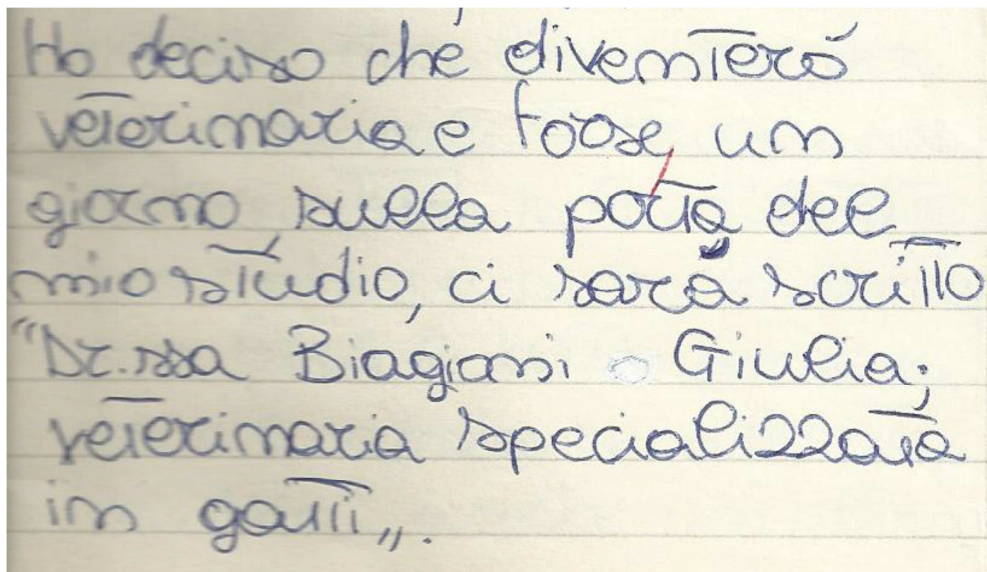 Ho deciso che diventerò
veterinaria e forse, un
giorno sulla porta del
mio studio, ci sarà scritto
"Dr.ssa Biagioni Giulia;
veterinaria specializzata
in gatti„.